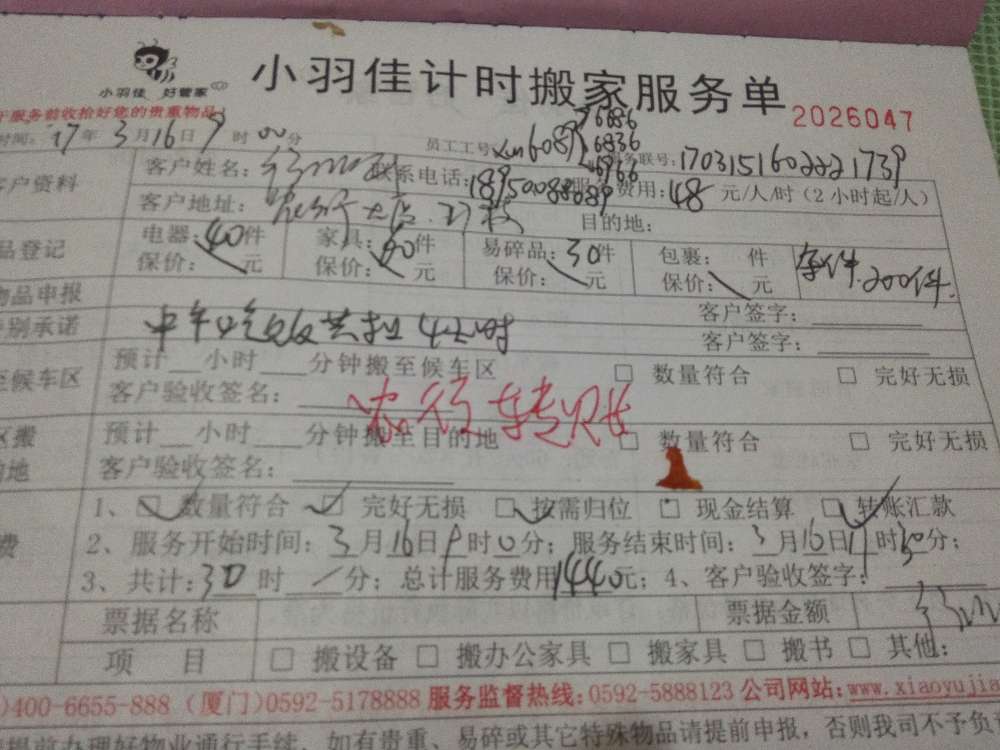 小羽佳 好管家
小羽佳计时搬家服务单
2026047
服务前收拾好您的贵重物品
时间: 17年3月16日9时00分
员工工号: xm6087
7686
6836
46966
服务联号: 1703151602221739
客户资料
客户姓名:
联系电话: 18950088089
服务费用: 48 元/人/时 (2小时起/人)
客户地址:
目的地:
品登记
电器: 40件
家具: 60件
易碎品: 30件
包裹: 件
杂件.200件.
保价: 元
保价: 元
保价: 元
保价: 元
物品申报
客户签字:
特别承诺
中午吃饭共扣4小时
客户签字:
至候车区
预计 小时 分钟搬至候车区
□ 数量符合 □ 完好无损
客户验收签名:
农行转账
区搬
预计 小时 分钟搬至目的地
□ 数量符合 □ 完好无损
的地
客户验收签名:
1、□ 数量符合 □ 完好无损 □ 按需归位 □ 现金结算 □ 转账汇款
费
2、服务开始时间: 3月16日9时0分; 服务结束时间: 3月16日17时30分;
3、共计: 30时 分; 总计服务费用1440元; 4、客户验收签字:
票据名称
票据金额
项 目
□ 搬设备 □ 搬办公家具 □ 搬家具 □ 搬书 □ 其他:
)400-6655-888 (厦门)0592-5178888 服务监督热线: 0592-5888123 公司网站: www.xiaoyujia
提前办理好物业通行手续, 如有贵重、易碎或其它特殊物品请提前申报, 否则我司不予负